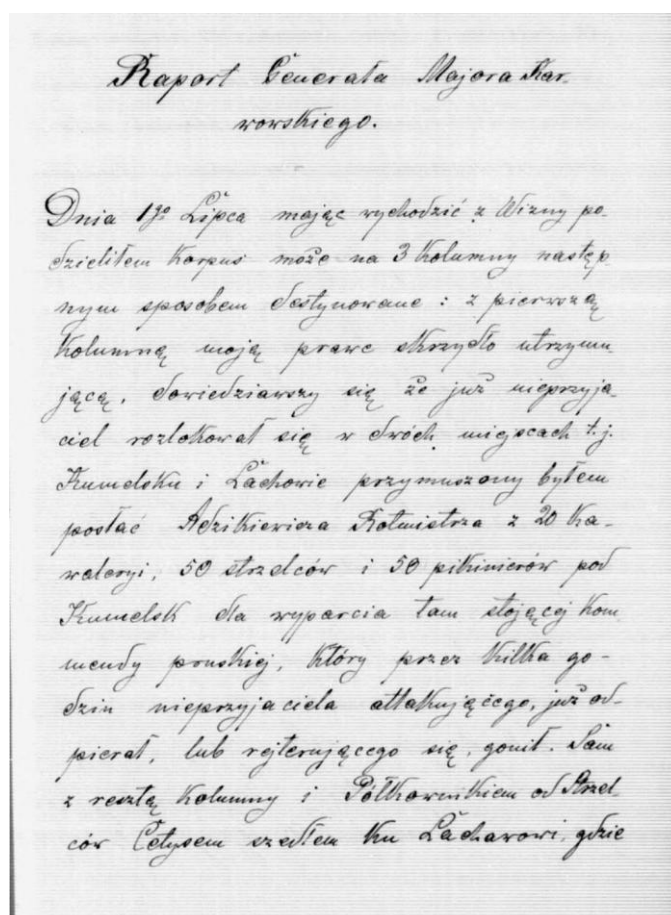 Raport Generała Majora Kar-
wowskiego.
Dnia 1go Lipca mając wychodzić z Wizny po-
dzieliłem Korpus może na 3 Kolumny następ-
nym sposobem destynowane: z pierwszą
Kolumną moją prawe skrzydło utrzymu-
jącą, dowiedziawszy się że już nieprzyja-
ciel rozlokował się w dwóch miejscach t.j.
Kumelsku i Lachowie przymuszony byłem
posłać Rotmistrza z 20 Ka-
waleryi, 50 strzelców i 50 pikinierów pod
Kumelsk dla wyparcia tam stojącej Kom
mendy pruskiej, Który przez Kilka go-
dzin nieprzyjaciela attakującego, już od-
pierał, lub rejterującego się, gonił. Sam
z resztą Kolumny i Półkownikiem od Strzel-
ców szedłem Ku gdzie